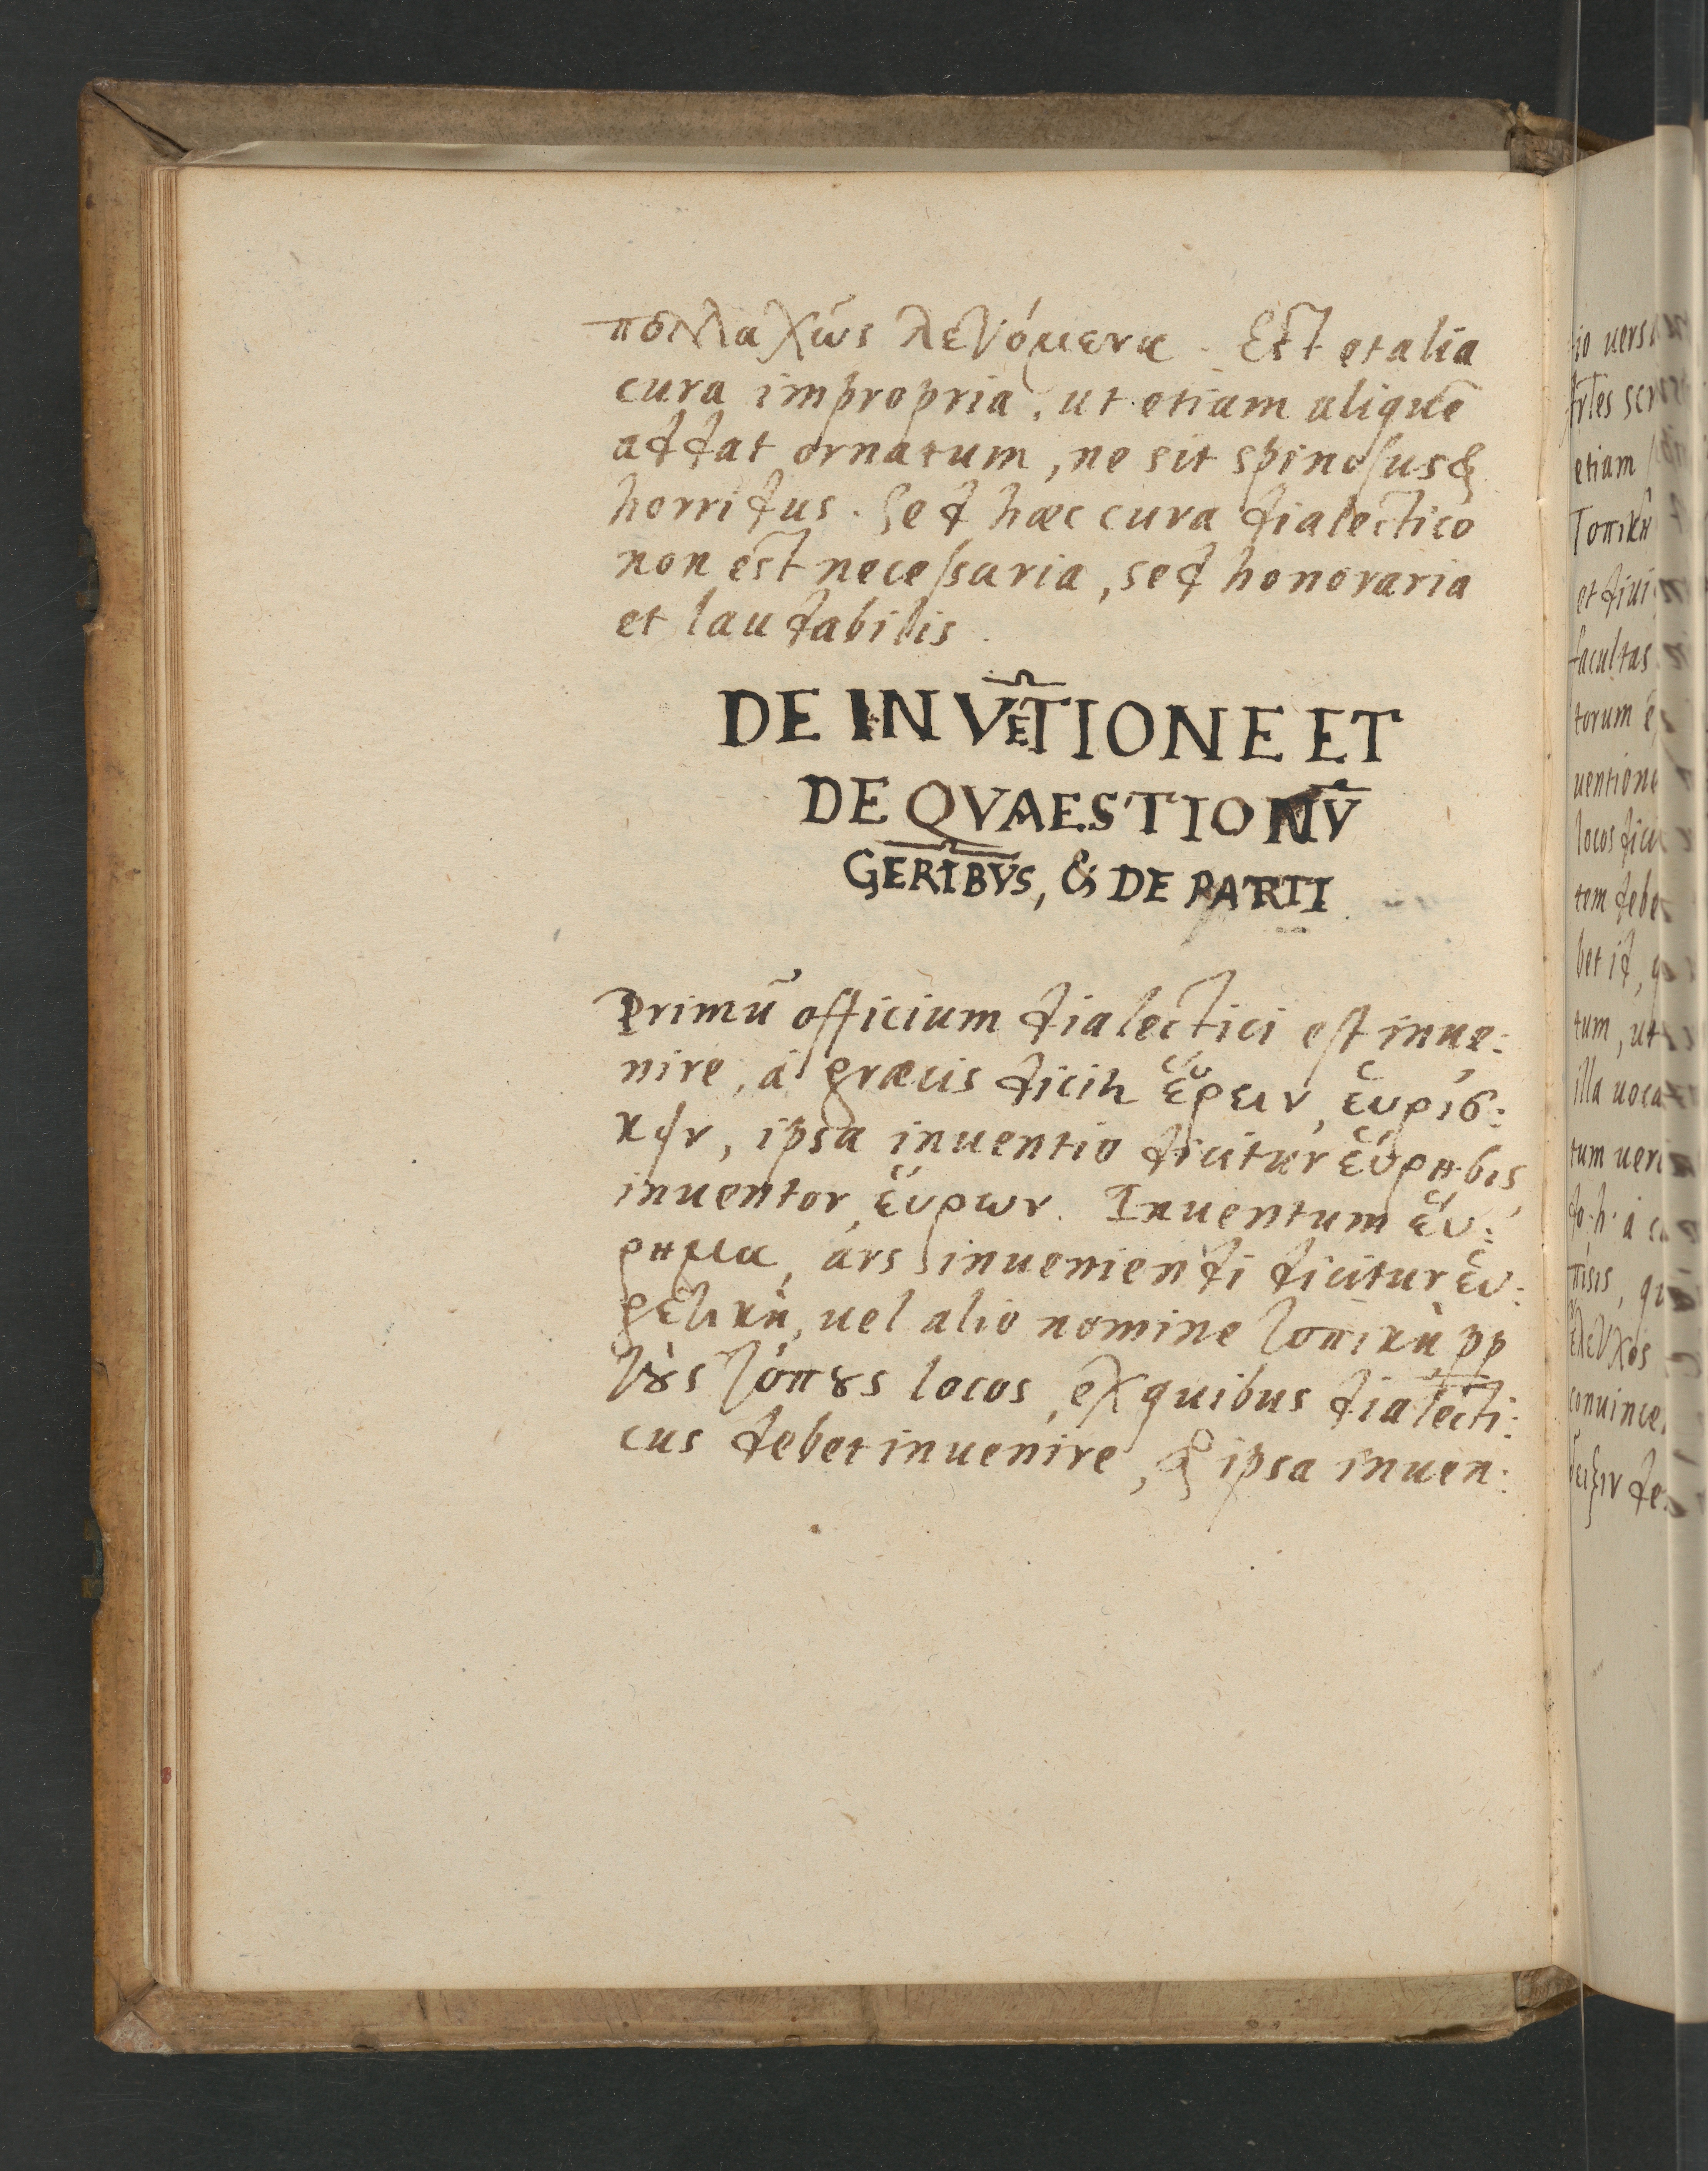 πολλαχῶς λεγόμενα. Est et alia
cura impropria, ut etiam aliquē
addat ornatum, ne sit spinosus &
horridus. Sed hæc cura dialectico
non est necessaria, sed honoraria
et laudabilis.
DE INVĒTIONE ET
DE QVAESTIONV̄
GERIBVS, & DE PARTI
Primū officium dialectici est inue:
nire, a græcis dicit̃ ἕυρειν, ἑυρίσ:
κειν, ipsa inuentio dicitur ἕυρησις,
inuentor, ἕυρων. Inuentum ἕυ:
ρημα, ars inueniendi dicitur ἑυ:
ρετικὴ, uel alio nomine τοπικὴ pp
τȣ̀ς τόπȣς locos, ex quibus dialecti:
cus debet inuenire, & ipsa inuen:
io uers
etiam
Τοπικὴ
et diui
facultas
torum
uention
locos dici
tem debe
bet id, q
tum, ut
illa uoca
tum ueri
ἔλεγχος
conuince